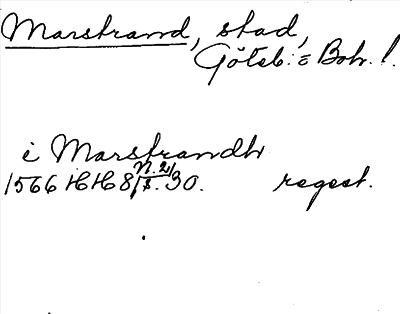 Marstrand, stad,
Göteb. o Boh. l.
i Marstrandh
1566 HH 8, N. 2, s. 30. regest.